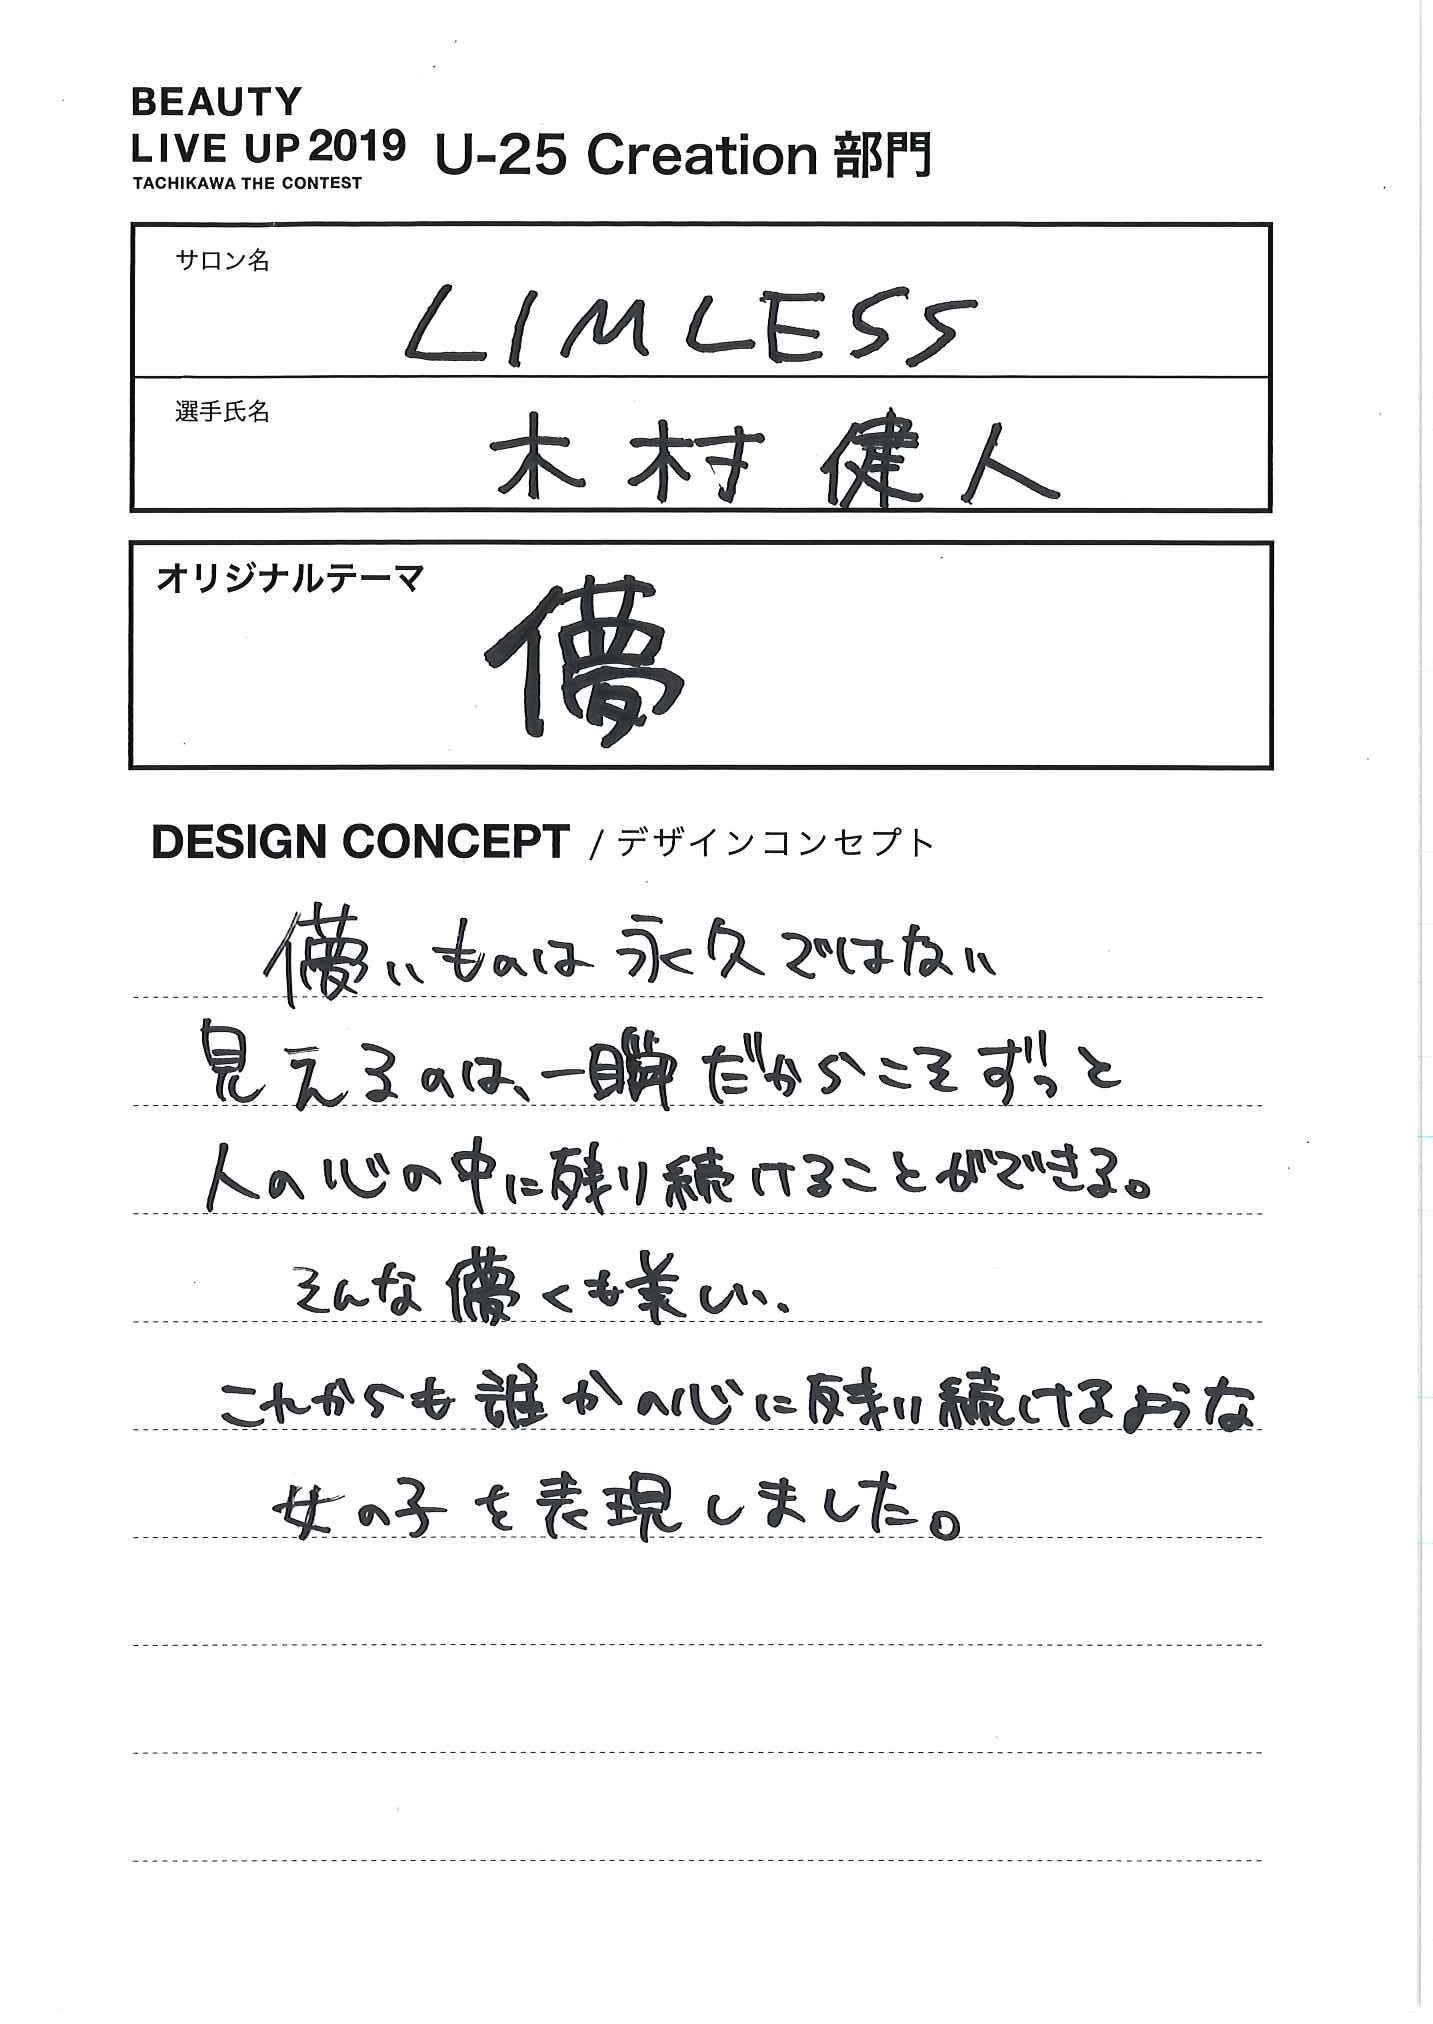 BEAUTY
LIVE UP 2019 U-25 Creation 部門
TACHIKAWA THE CONTEST
サロン名
LIMLESS
選手氏名
木村 健人
オリジナルテーマ
儚
DESIGN CONCEPT / デザインコンセプト
儚いものは永久ではない
見えるのは、一瞬だからこそずっと
人の心の中に残り続けることができる。
そんな儚くも美しい、
これからも誰かの心に残り続けるような
女の子を表現しました。